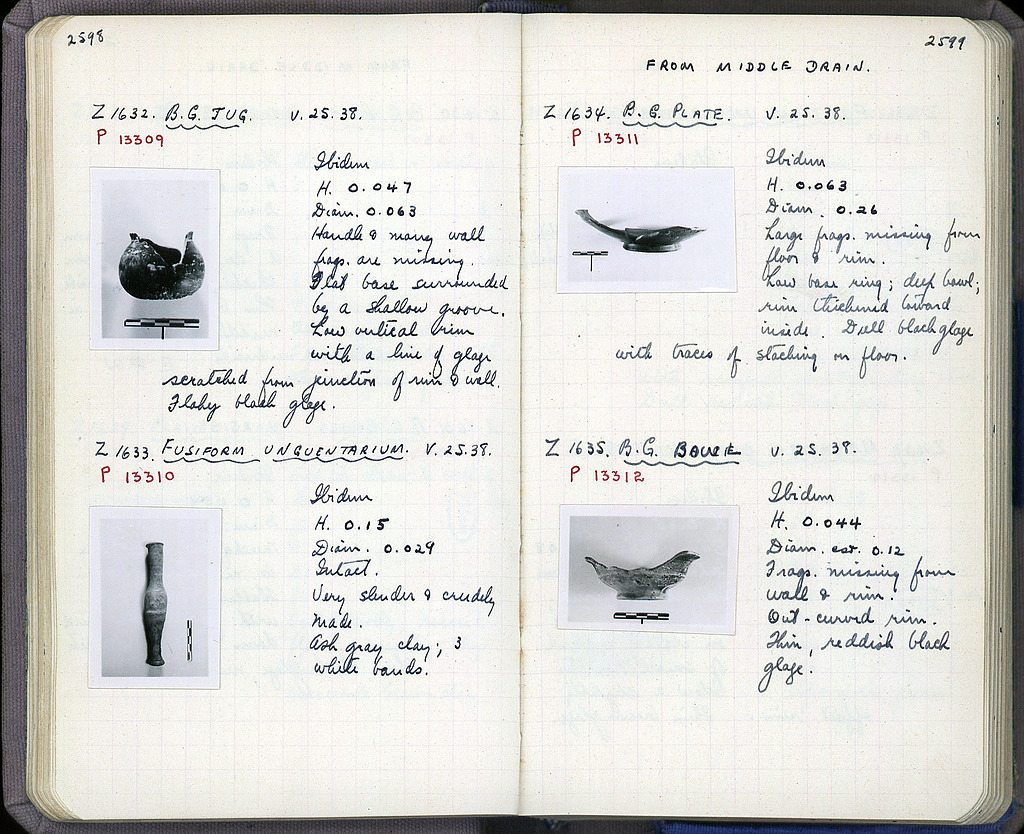 2598
Z 1632. B.G. JUG. V. 25. 38.
P 13309
Ibidem
H. 0.047
Diam. 0.063
Handle & many wall
frags. are missing.
Flat base surrounded
by a shallow groove.
Low vertical rim
with a line of glaze
scratched from junction of rim & wall.
Flaky black glaze.
Z 1633. FUSIFORM UNGUENTARIUM. V. 25.38.
P 13310
Ibidem
H. 0.15
Diam. 0.029
Intact.
Very slender & crudely
made.
Ash gray clay; 3
white bands.
2599
FROM MIDDLE DRAIN.
Z 1634. B.G. PLATE. V. 25. 38.
P 13311
Ibidem
H. 0.063
Diam. 0.26
Large frags. missing from
floor & rim.
Low base ring; deep bowl;
rim thickened toward
inside. Dull black glaze
with traces of stacking on floor.
Z 1635. B.G. BOWL V. 25. 38.
P 13312
Ibidem
H. 0.044
Diam. est. 0.12
Frags. missing from
wall & rim.
Out-curved rim.
Thin, reddish black
glaze.